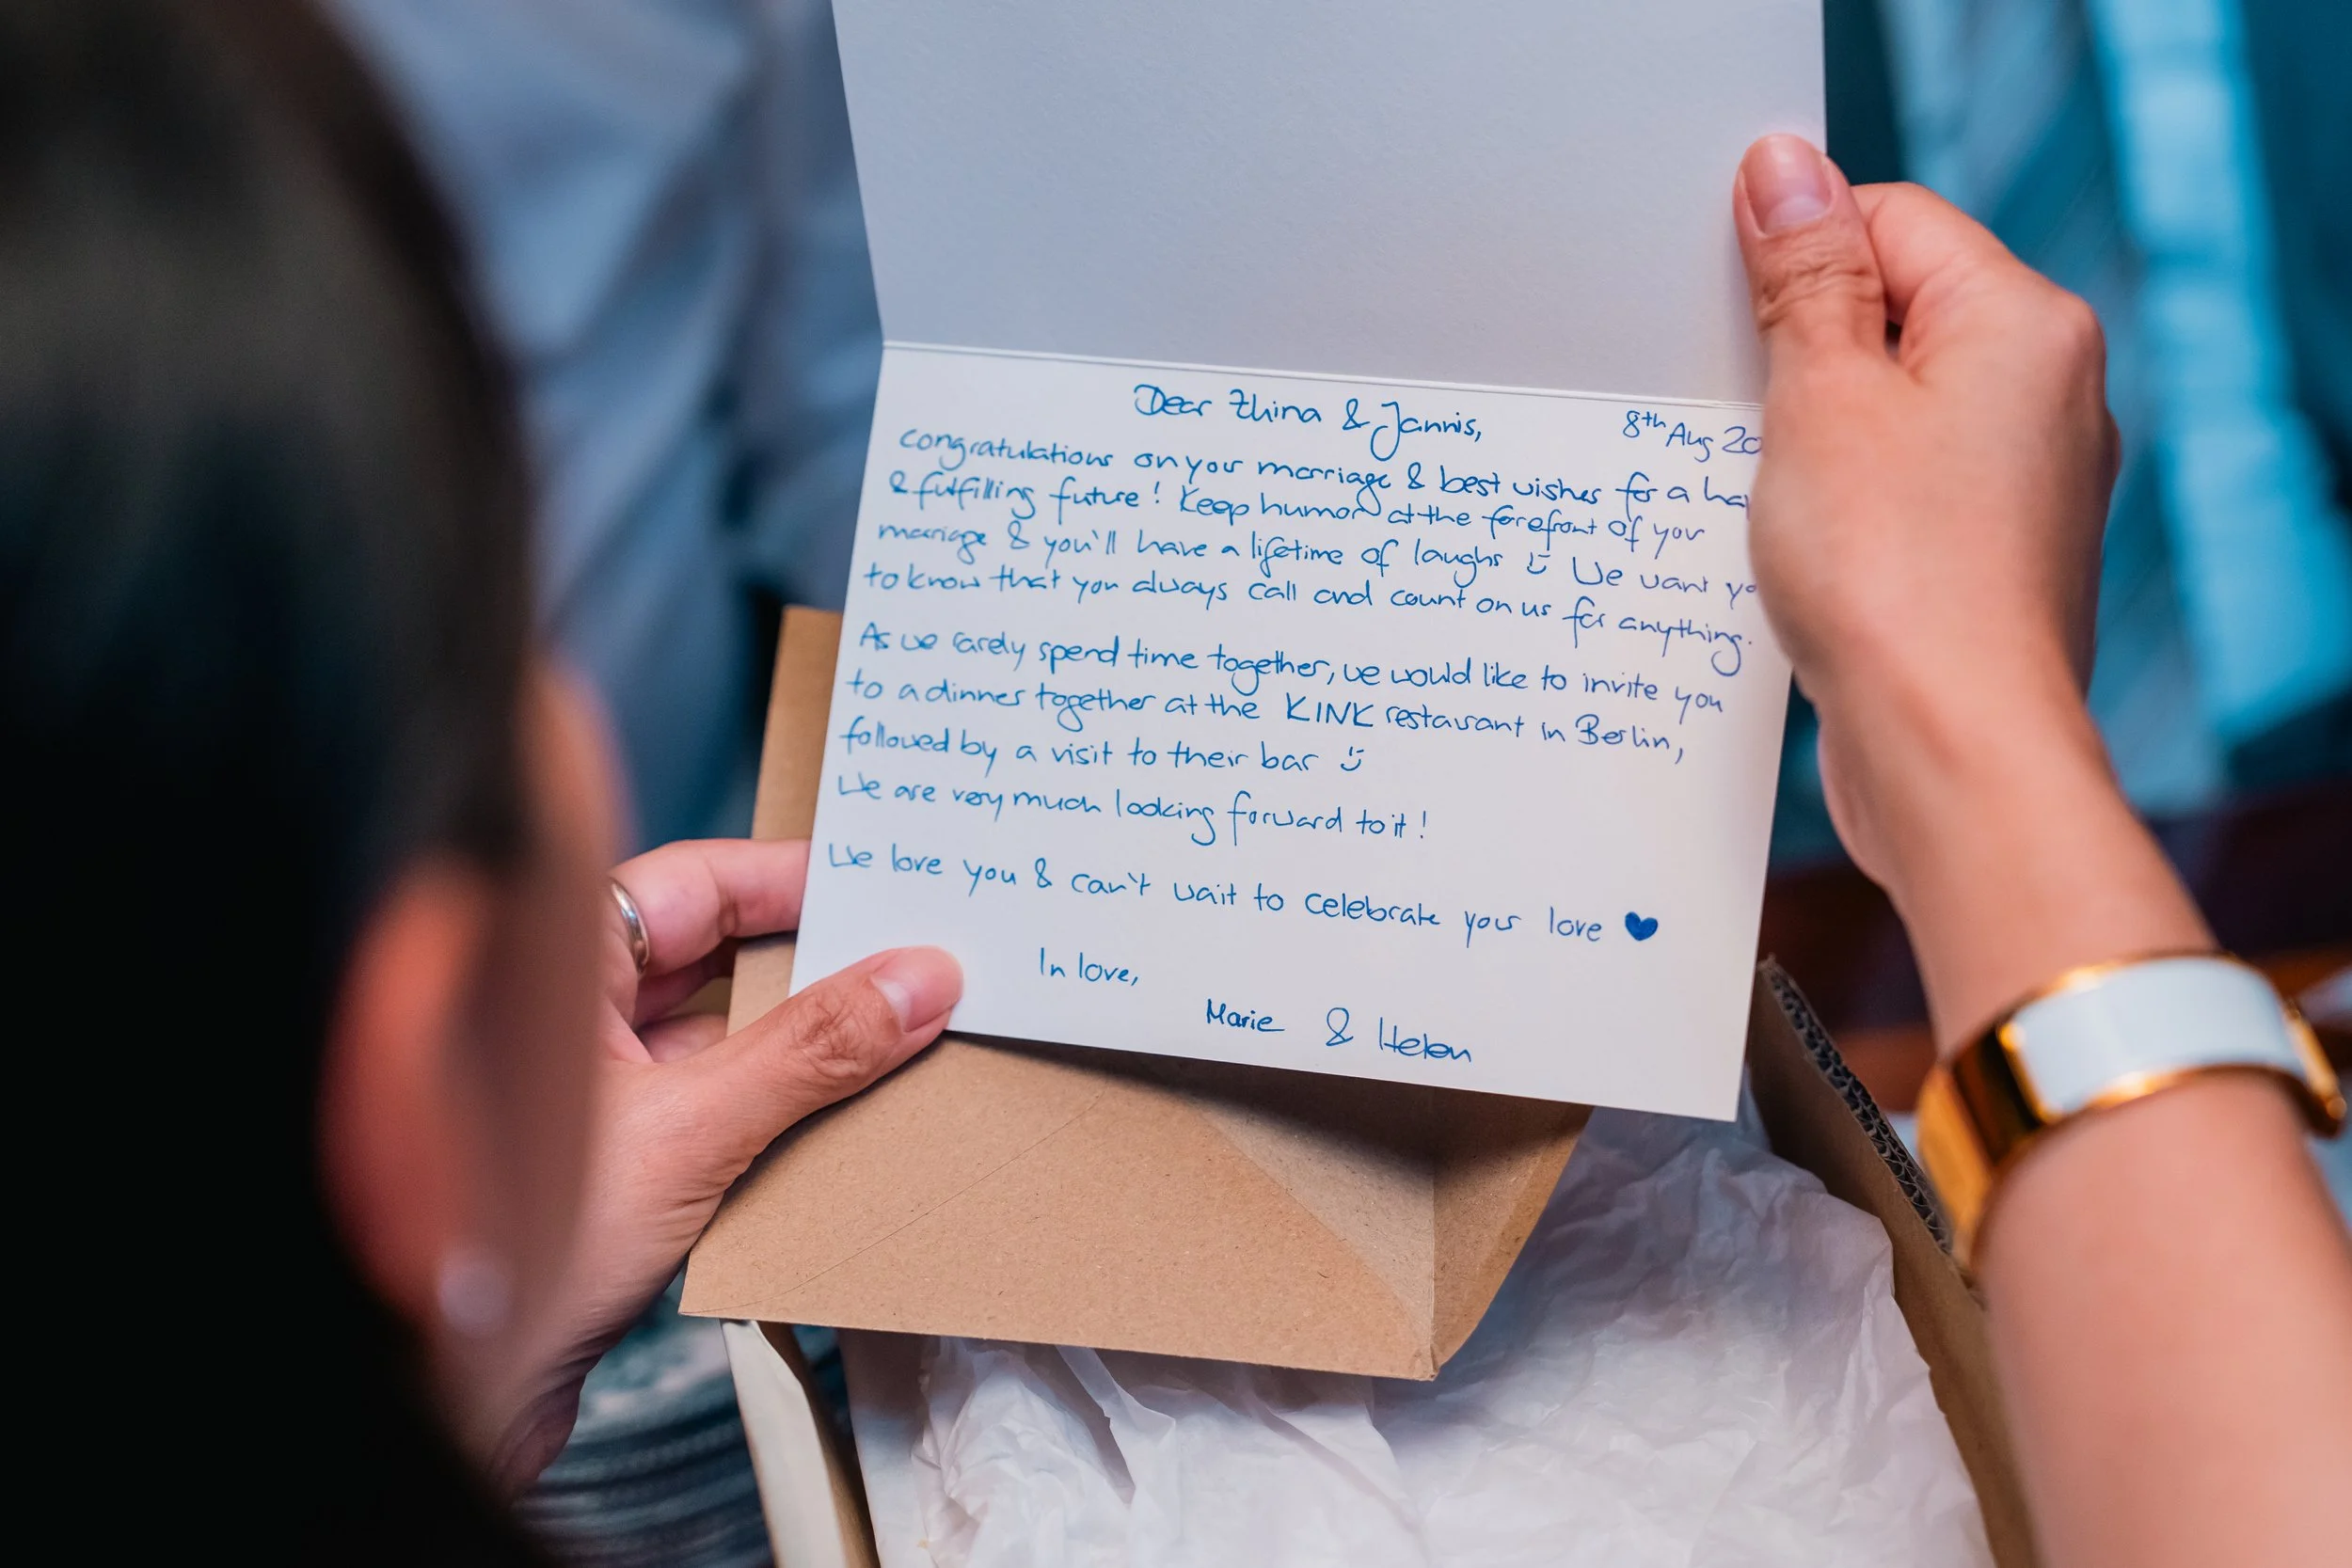 Dear Zhina & Jannis,
8th Aug 20
congratulations on your marriage & best wishes for a ha
& fulfilling future! Keep humor at the forefront of your
marriage & you'll have a lifetime of laughs :) We want yo
to know that you always call and count on us for anything.
As we rarely spend time together, we would like to invite you
to a dinner together at the KINK restaurant in Berlin,
followed by a visit to their bar :)
We are very much looking forward to it!
We love you & can't wait to celebrate your love ♥
In love,
Marie & Helen